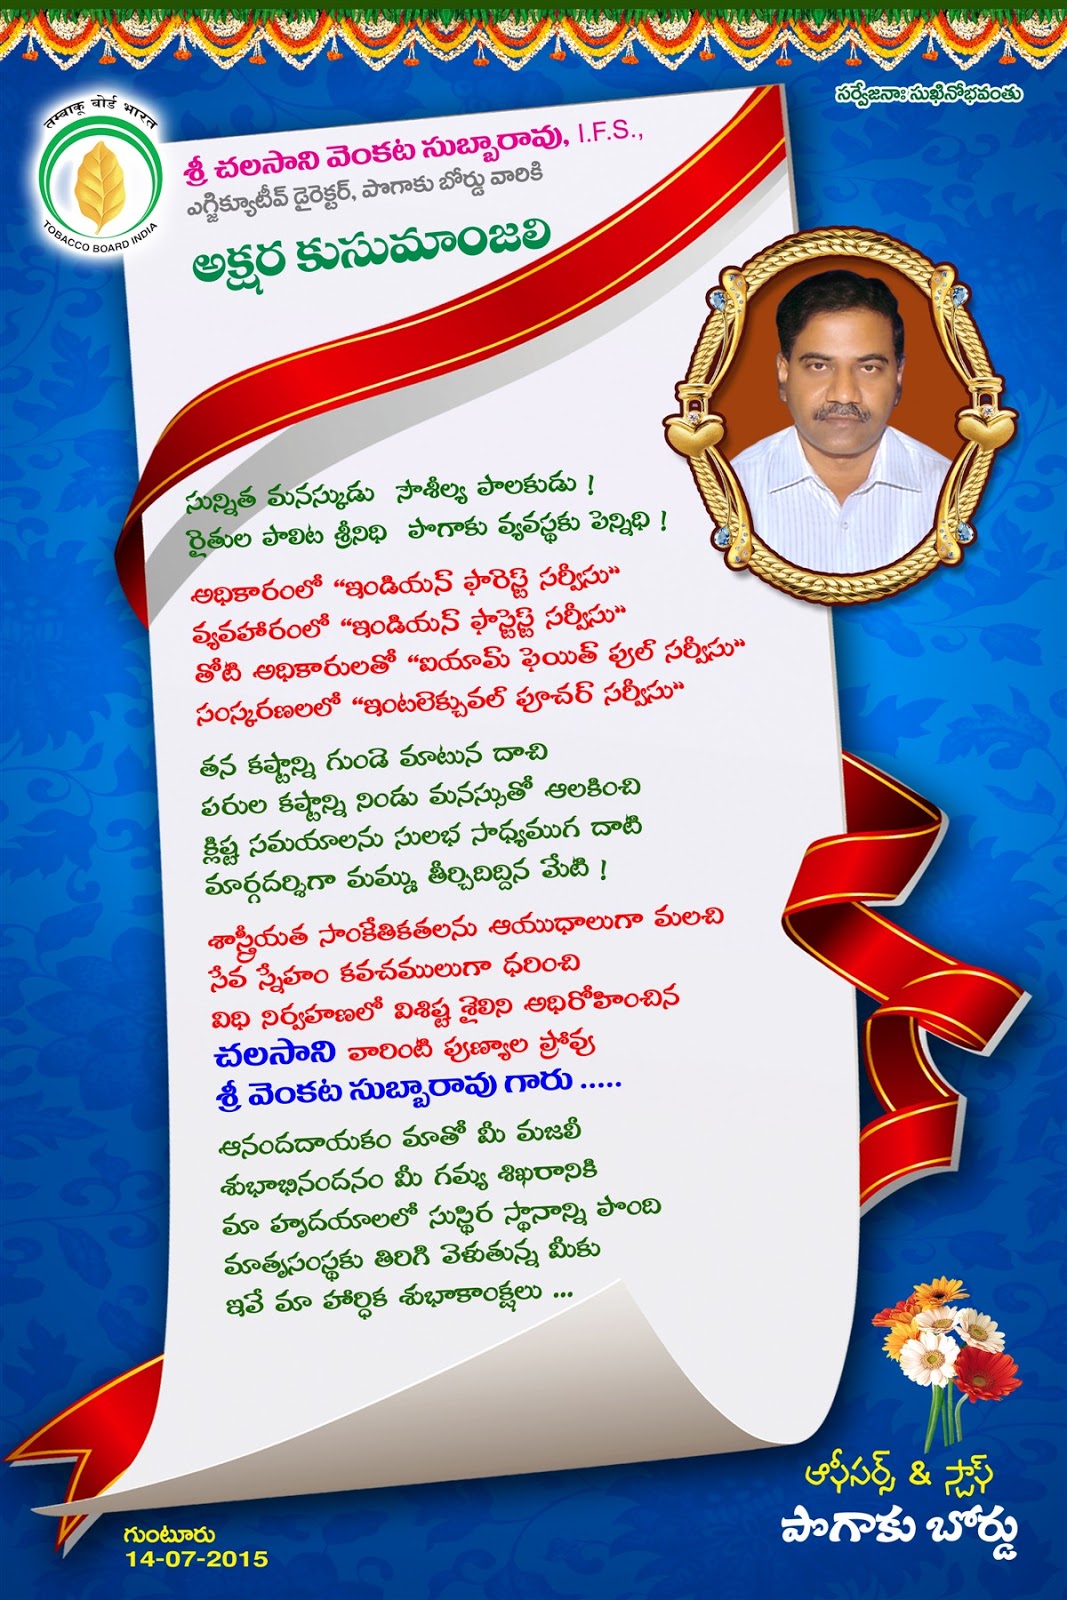 సర్వేజనాః సుఖినోభవంతు
तम्बाकू बोर्ड भारत
TOBACCO BOARD INDIA
శ్రీ చలసాని వెంకట సుబ్బారావు, I.F.S.,
ఎగ్జిక్యూటీవ్ డైరెక్టర్, పొగాకు బోర్డు వారికి
అక్షర కుసుమాంజలి
సున్నిత మనస్కుడు సౌశీల్య పాలకుడు !
రైతుల పాలిట శ్రీనిధి పొగాకు వ్యవస్థకు పెన్నిధి !
అధికారంలో “ఇండియన్ ఫారెస్ట్ సర్వీసు”
వ్యవహారంలో “ఇండియన్ ఫాస్టెస్ట్ సర్వీసు”
తోటి అధికారులతో “ఐయామ్ ఫెయిత్ ఫుల్ సర్వీసు”
సంస్కరణలలో “ఇంటలెక్చువల్ ఫూచర్ సర్వీసు”
తన కష్టాన్ని గుండె మాటున దాచి
పరుల కష్టాన్ని నిండు మనస్సుతో ఆలకించి
క్లిష్ట సమయాలను సులభ సాధ్యముగ దాటి
మార్గదర్శిగా మమ్ము తీర్చిదిద్దిన మేటి !
శాస్త్రీయత సాంకేతికతలను ఆయుధాలుగా మలచి
సేవ స్నేహం కవచములుగా ధరించి
విధి నిర్వహణలో విశిష్ట శైలిని అధిరోహించిన
చలసాని వారింటి పుణ్యాల ప్రోవు
శ్రీ వెంకట సుబ్బారావు గారు .....
ఆనందదాయకం మాతో మీ మజలీ
శుభాభినందనం మీ గమ్య శిఖరానికి
మా హృదయాలలో సుస్థిర స్థానాన్ని పొంది
మాతృసంస్థకు తిరిగి వెళుతున్న మీకు
ఇవే మా హార్ధిక శుభాకాంక్షలు ...
ఆఫీసర్స్ & స్టాఫ్
పొగాకు బోర్డు
గుంటూరు
14-07-2015